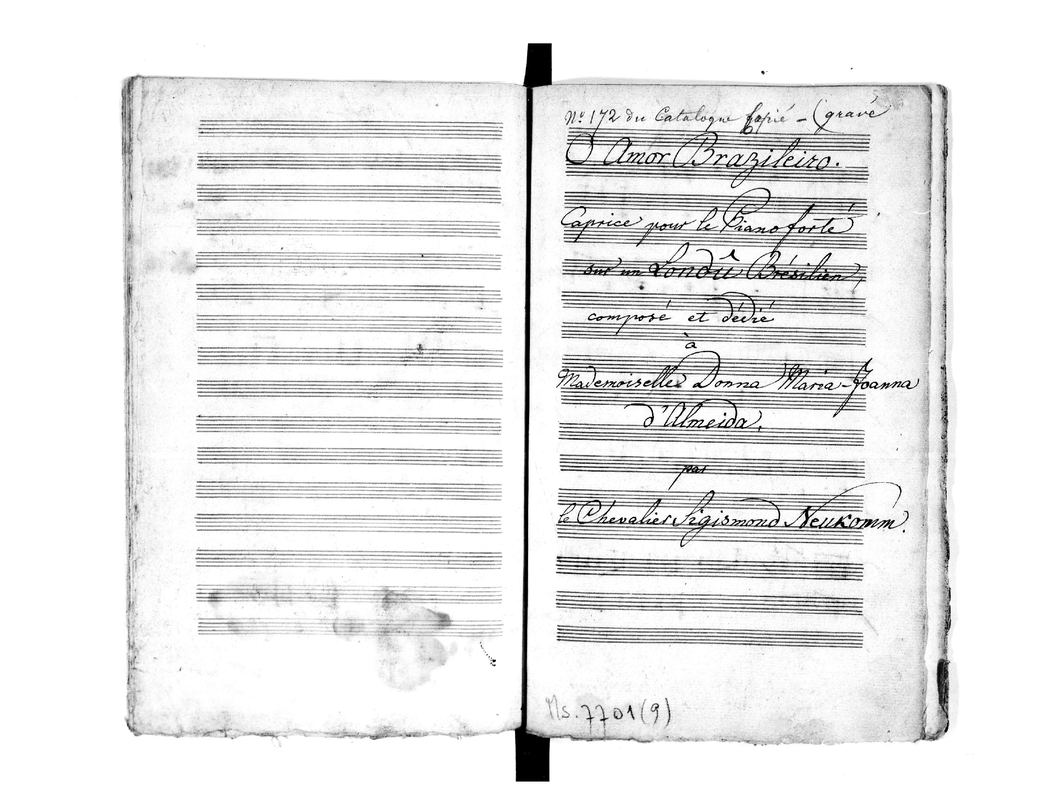 Nº 172 du Catalogue copié - (gravé
O Amor Brazileiro.
Caprice pour le Pianoforté
sur un Londû Brésilien,
composé et dédié
à
Mademoiselle Donna Maria-Joanna
d'Almeida,
par
le Chevalier Sigismond Neukomm.
Ms. 7701(9)